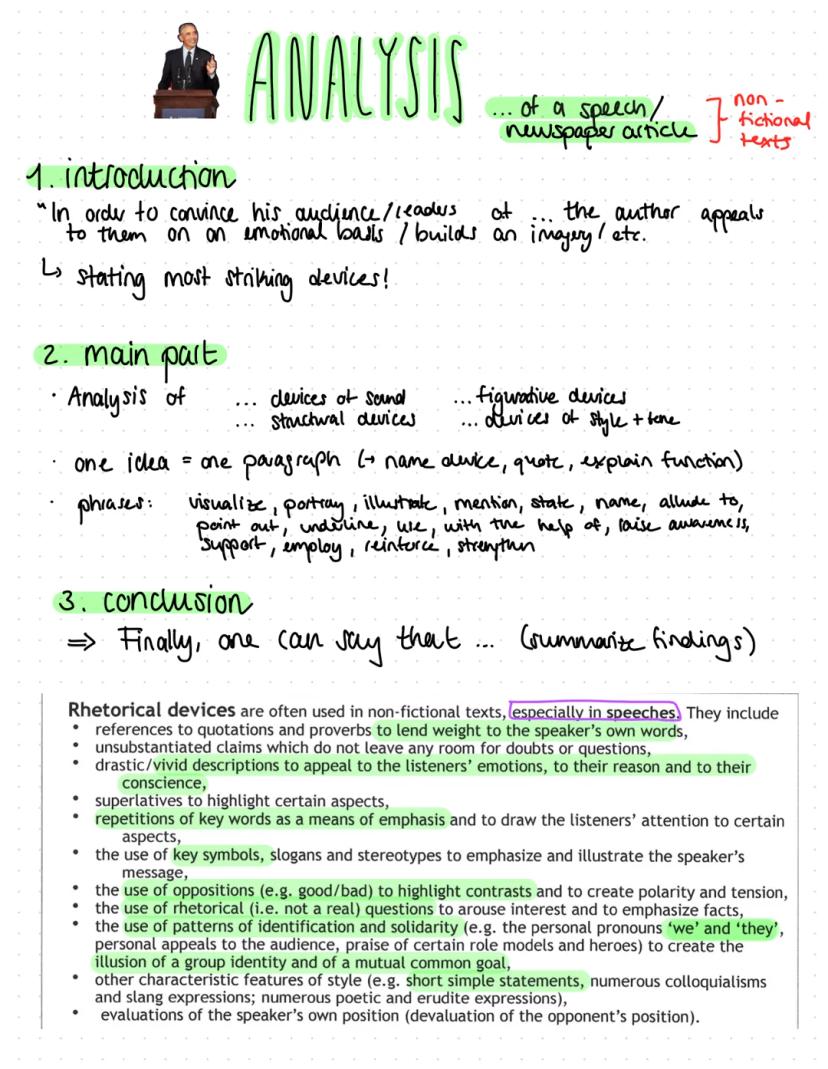 ANALYSIS
... of a speech/
newspaper article
non-
fictional
texts
1. introduction
"In order to convince his audience/readers of ... the author appeals
to them on an emotional basis / builds an imagery/ etc.
↳ stating most striking devices!
2. main part
· Analysis of ... devices of sound ... figurative devices
... structural devices ... devices of style + tone
· one idea = one paragraph (→ name device, quote, explain function)
· phrases: visualize, portray, illustrate, mention, state, name, allude to,
point out, underline, use, with the help of, raise awareness,
support, employ, reinforce, strengthen
3. conclusion
⇒ Finally, one can say that ... (summarize findings)
Rhetorical devices are often used in non-fictional texts, especially in speeches. They include
• references to quotations and proverbs to lend weight to the speaker's own words,
• unsubstantiated claims which do not leave any room for doubts or questions,
• drastic/vivid descriptions to appeal to the listeners' emotions, to their reason and to their
conscience,
• superlatives to highlight certain aspects,
• repetitions of key words as a means of emphasis and to draw the listeners' attention to certain
aspects,
• the use of key symbols, slogans and stereotypes to emphasize and illustrate the speaker's
message,
• the use of oppositions (e.g. good/bad) to highlight contrasts and to create polarity and tension,
• the use of rhetorical (i.e. not a real) questions to arouse interest and to emphasize facts,
• the use of patterns of identification and solidarity (e.g. the personal pronouns 'we' and 'they',
personal appeals to the audience, praise of certain role models and heroes) to create the
illusion of a group identity and of a mutual common goal,
• other characteristic features of style (e.g. short simple statements, numerous colloquialisms
and slang expressions; numerous poetic and erudite expressions),
• evaluations of the speaker's own position (devaluation of the opponent's position).